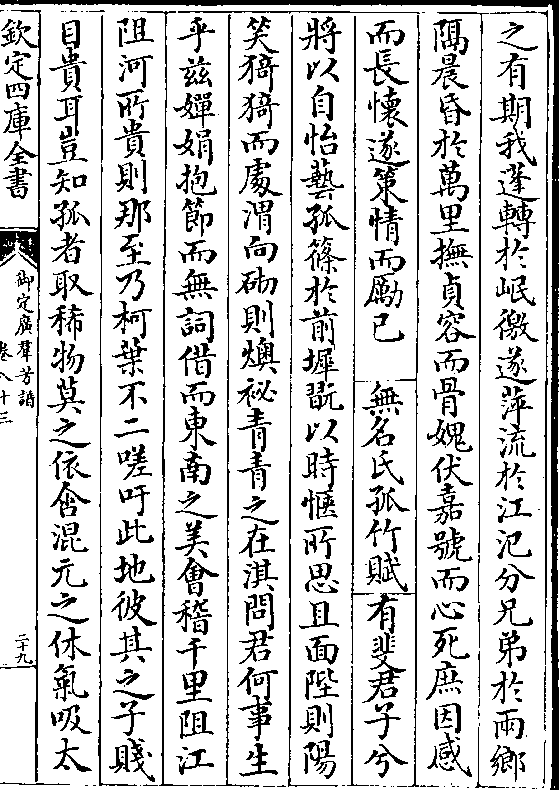 之有期我蓬轉於岷徼遂萍流於江汜分兄弟於兩鄉
隔晨昏於萬里撫貞容而骨媿伏嘉號而心死庶因感
而長懷遂策情而勵已 無名氏孤竹賦 有斐君子兮
將以自怡藝孤篠於前墀翫以時惬所思且面陛則陽
笑猗猗而處渭向砌則燠祕青青之在淇問君何事生
乎兹嬋娟抱節而無詞借而東南之美會稽千里阻江
阻河所貴則那至乃柯葉不二嗟吁此地彼其之子賤
目貴耳豈知孤者取稀物莫之依含混元之休氣吸太
欽定四庫全書
御定廣羣芳譜
卷八十三
二十九